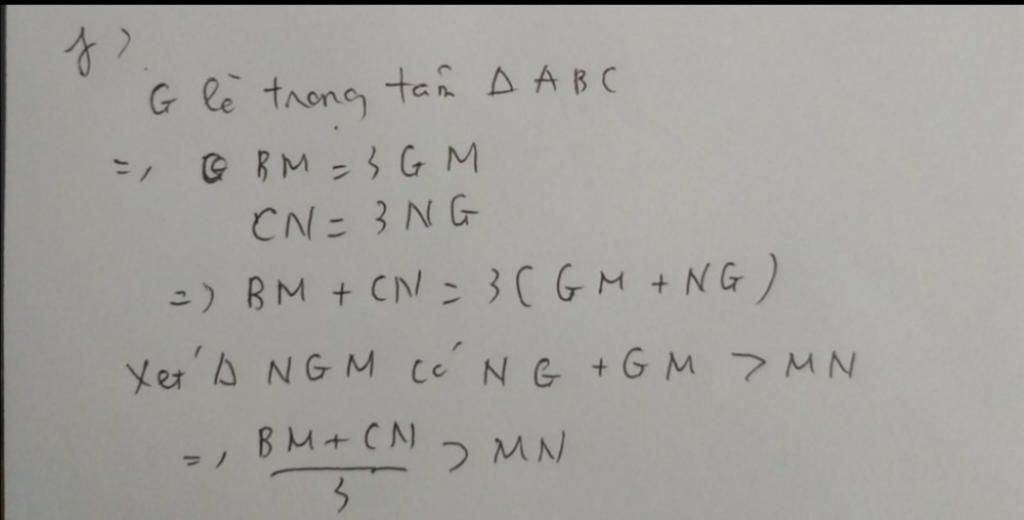 f)
G là trọng tâm Δ ABC
=> BM = 3GM
CN = 3NG
=> BM + CN = 3(GM + NG)
Xét Δ NGM có NG + GM > MN
=> (BM + CN)/3 > MN